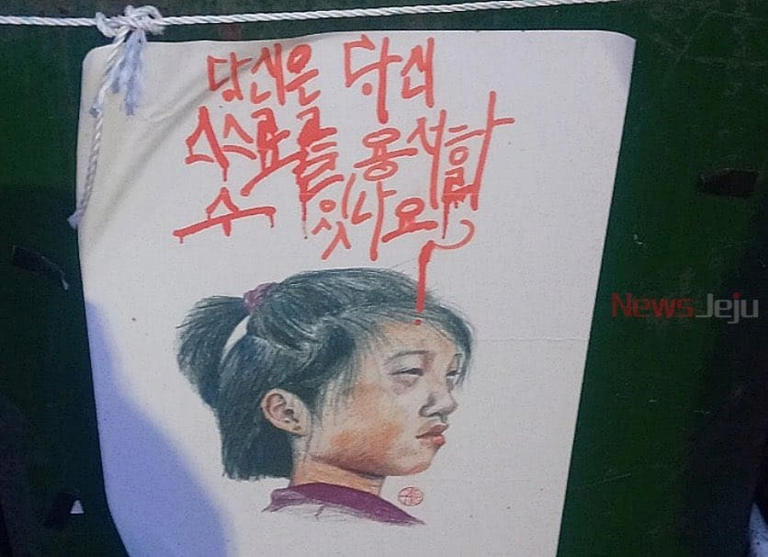 당신은 당신
스스로를 용서할
수 잇나요?
NewsJeju